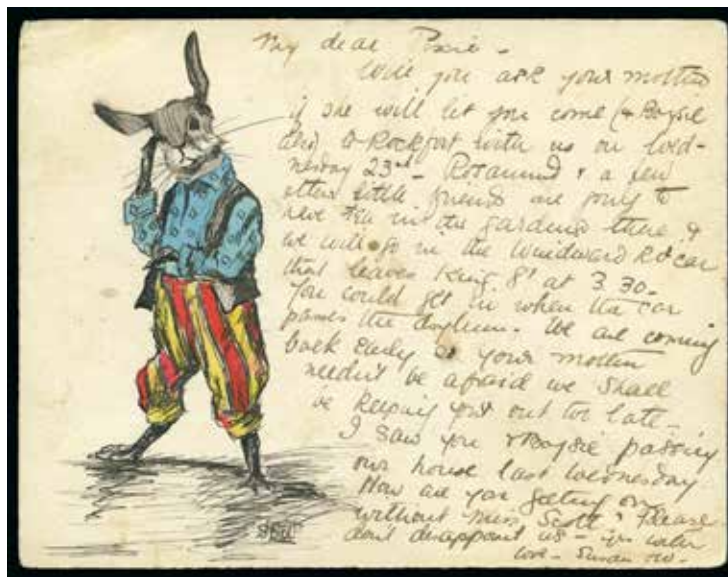 My dear Pixie -
Will you ask your mother
if she will let you come (& Boysie
also to Rockfort with us on Wed-
nesday 23rd - Rosamund & a few
other little friends are going to
have tea in the gardens there &
we will go in the Windward Rd car
that leaves King St at 3.30 -
You could get in when the car
passes the Asylum. We are coming
back early so your mother
needn't be afraid we shall
be keeping you out too late -
I saw you & Boysie passing
our house last Wednesday
How are you getting on
without Miss Scott? Please
don't disappoint us -
love - Susan